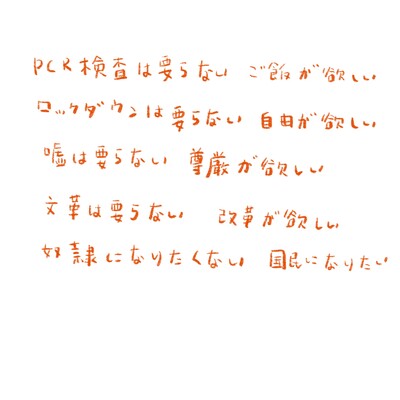 PCR検査は要らない ご飯が欲しい
ロックダウンは要らない 自由が欲しい
嘘は要らない 尊厳が欲しい
文革は要らない 改革が欲しい
奴隷になりたくない 国民になりたい